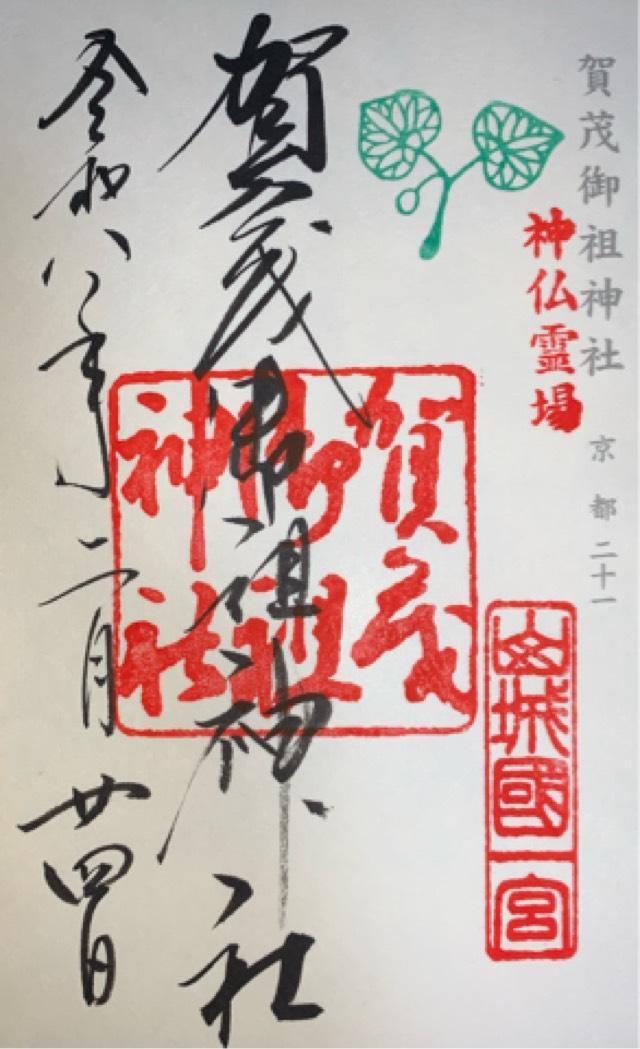 賀茂御祖神社 京都二十一
神仏霊場
山城國一宮
賀茂御祖神社
賀茂御祖神社
令和八年二月廿四日